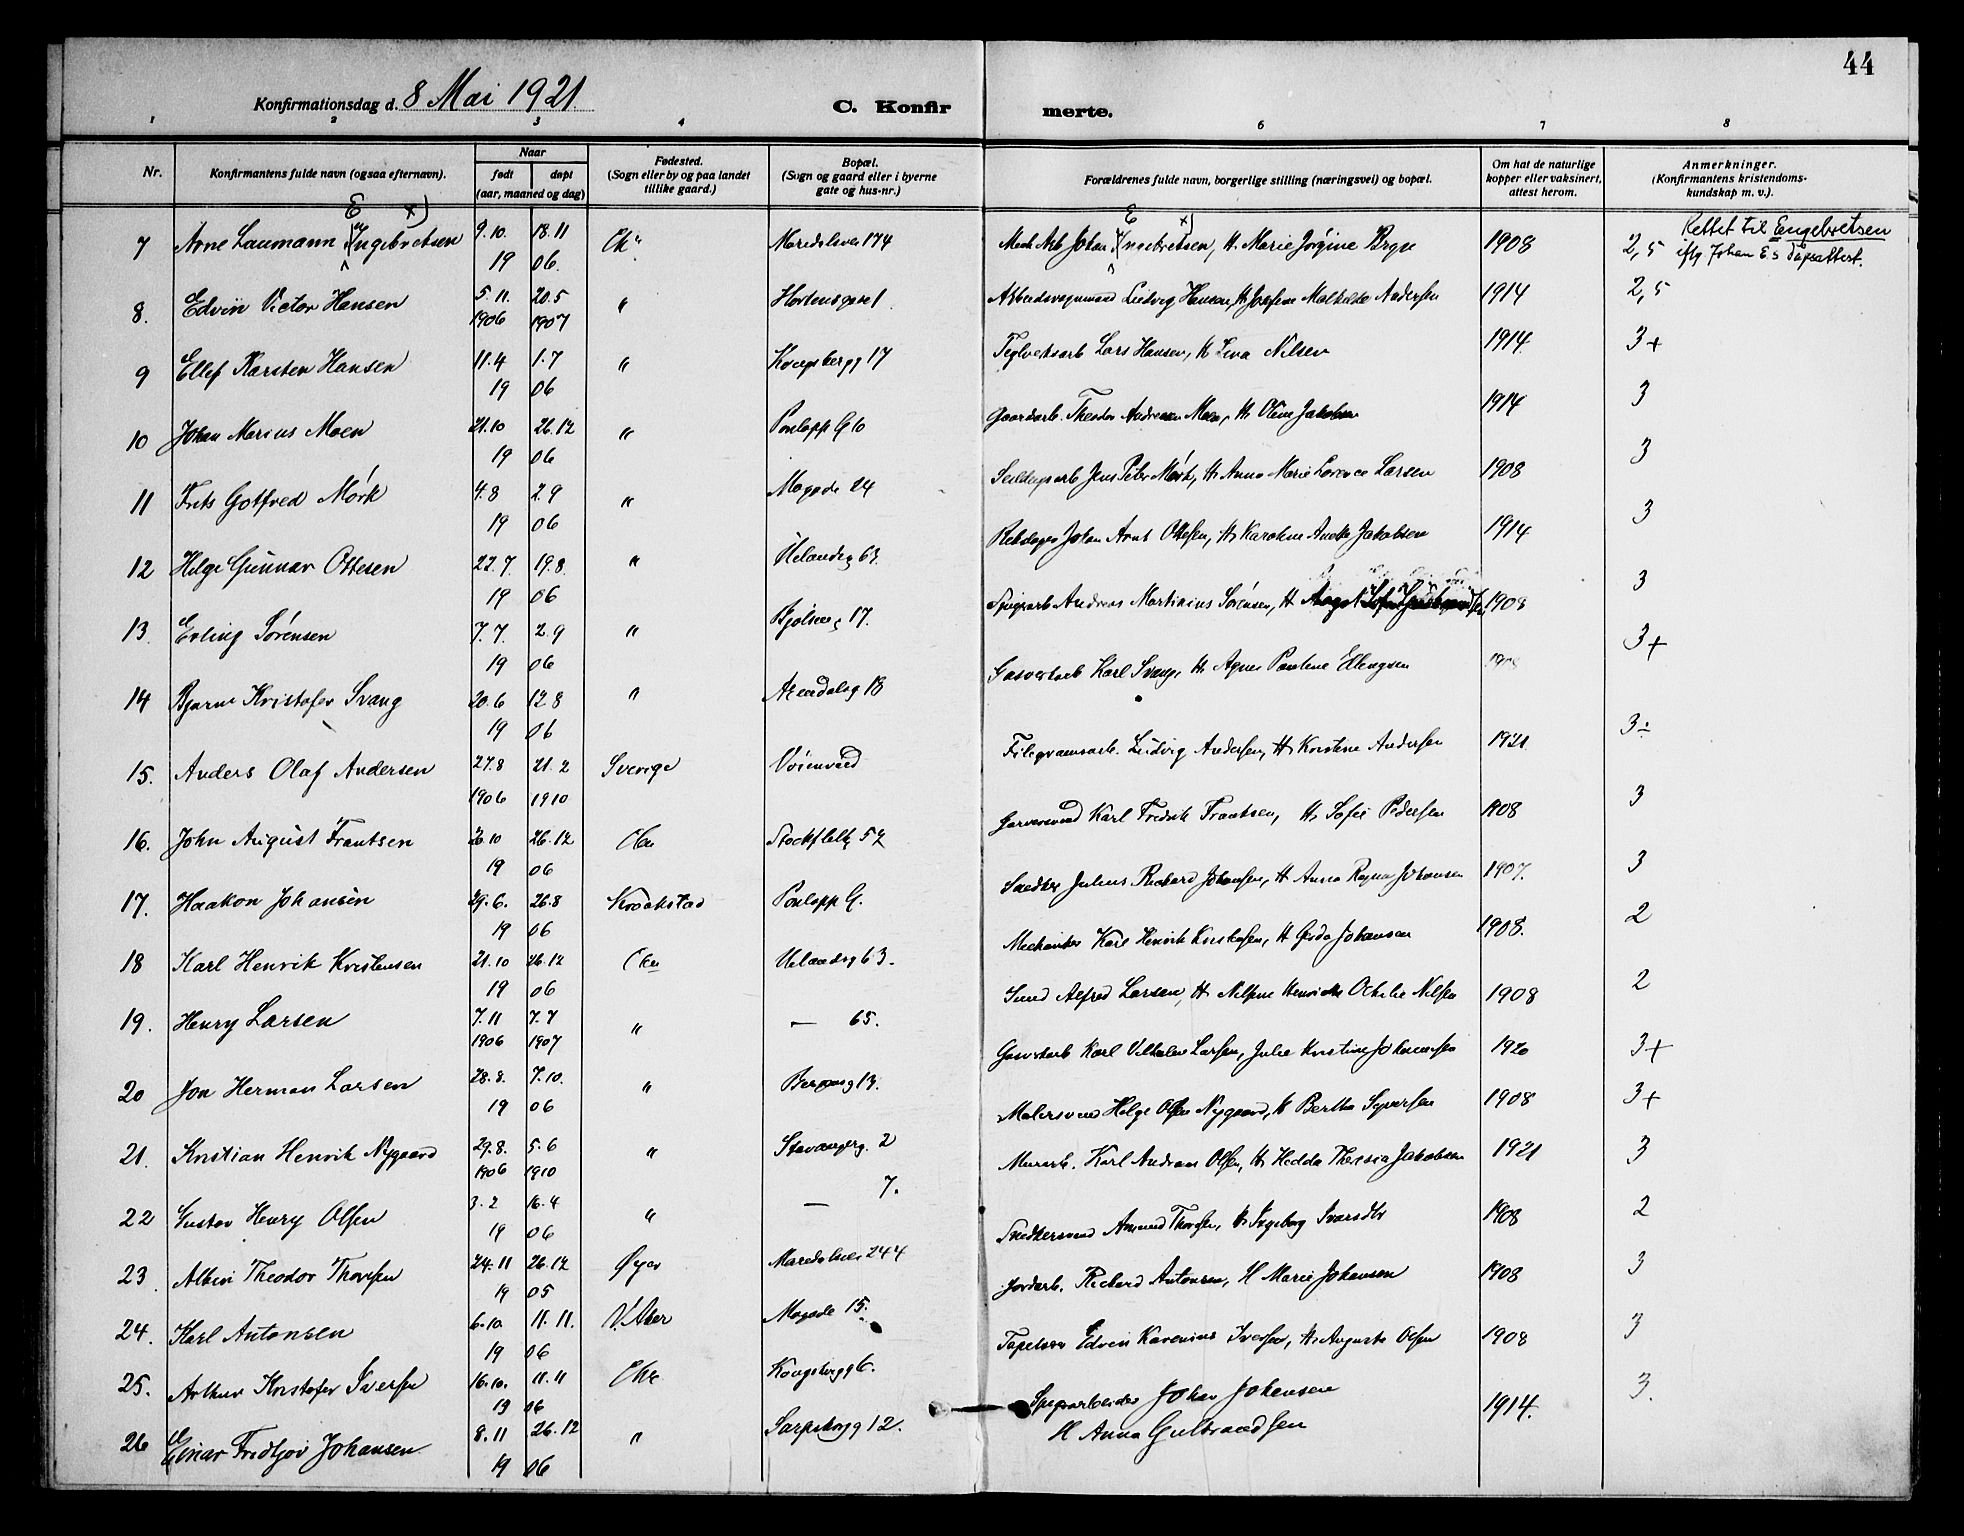 44
Konfirmationsdag d. 8 Mai 1921.
C. Konfir merte.
1 2 3 4 6 7 8
Nr. Konfirmantens fulde navn (ogsaa efternavn). Naar født døpt (aar, maaned og dag) Fødested. (Sogn eller by og paa landet tillike gaard.) Bopæl. (Sogn og gaard eller i byerne gate og hus-nr.) Forældrenes fulde navn, borgerlige stilling (næringsvei) og bopæl. Om hat de naturlige kopper eller vaksinert, attest herom. Anmerkninger. (Konfirmantens kristendoms-kundskap m. v.).
E x) E x) Rettet til Engebretsen
7 Arne Laumann Ingebretsen 9.10. 18.11 19 06. Ch" Maridalsvei 174 Mek Arb Johan Ingebretsen, H. Marie Jørgine 1908 2,5 iflg Johan E.s Dåpsattest.
8. Edvin Victor Hansen 5.11. 20.5 1906 1907 " Hortensgate 1 Ludvig Hansen, H Josefine Mathilde Andersen 1914 2,5
9 Ellef Karsten Hansen 11.4 1.7 19 06 " Kongsbergg 17 Teglverksarb Lars Hansen, H Lina Nilsen 1914 3+
10 Johan Marius Moen 21.10 26.12 19 06 " G 10 Gaardarb. Theodor Andreasen Moen, H. Oline Jakobsen 1914 3
11 Frits Gotfred Mørk 4.8 2.9 19 06 " Mogade 24 Jens Peter Mørk, H. Anna Marie Larsen 1908 3
12 Helge Gunnar Ottesen 22.7. 19.8. 19 06 " Uelandsg 63. Johan Arnt Ottesen, H. Karoline Jakobsen 1914 3
13. Erling Sørensen 7.7. 2.9 19 06 " Bjølseng 17. Spigerarb Andreas Martinius Sørensen, H 1908 3
14 Bjarne Kristofer Svang 20.6 12.8 19 06 " Arendalsg 18 Gasverkarb Karl Svang, H. Agnes Pauline Ellingsen 3+
15. Anders Olaf Andersen 27.8 21.2 1906 1910 Sverige Ludvig Andersen, H Kristine Andersen 1921 3÷
16. John August Frantsen 26.12 19 06 Stockflethg 52 Garversvend Karl Fredrik Frantsen, H. Sofie Pedersen 1908 3
17. Haakon Johansen 29.6. 26.8 19 06 Kraakstad G. Snedker Julius Rickard Johansen, H Anna Ragna Johansen 1907. 3
18 Karl Henrik Kristensen 21.10 26.12 19 06 Uelandsg 63. Mechaniker Karl Henrik Kristensen, H Gerda Johansen 1908. 2
19. Henry Larsen 7.11 7.7 1906 1907 " — 65. Smed Alfred Larsen, H. Otilie Nilsen 1908 2
20 Jon Herman Larsen 28.8. 7.10. 19 06 " 13. Gasverkarb Karl Vilhelm Larsen, Julie Kristine Johannesen 1920 3+
21. Kristian Henrik Nygaard 29.8. 5.6 1906 1910 " Stavangerg. 2 Malersvend Helge Olsen Nygaard, H Bertha Syversen 1908 3+
22 Gustav Henry Olsen 3.2 16.4 19 06 " — 7. Murarb. Karl Andreas Olsen, H Hedda Theresia Jakobsen 1921 3
23 Albin Theodor Thoresen 24.11 26.12 19 05 Øyer Maridalsvei 244 Snedkersvend Amund Thoresen, H Ingeborg 1908 2
24. Karl Antonsen 6.10 11.11. 19 06 V. Aker Mogade 15. Jordarb. Rickard Antonsen, H Marie Johansen 1908 3
25. Arthur Kristofer Iversen 16.10. 11.11 19 06 Kongsbergg 6. Tapetserer Edvin Karenius Iversen, H. Augusta Olsen 1908 3
26 Einar Fridtjov Johansen 8.11 26.12 19 06 " Sarpsborgg 12. Spigerarbeider Johan Johansen H Anna Gulbrandsen 1914. 3.